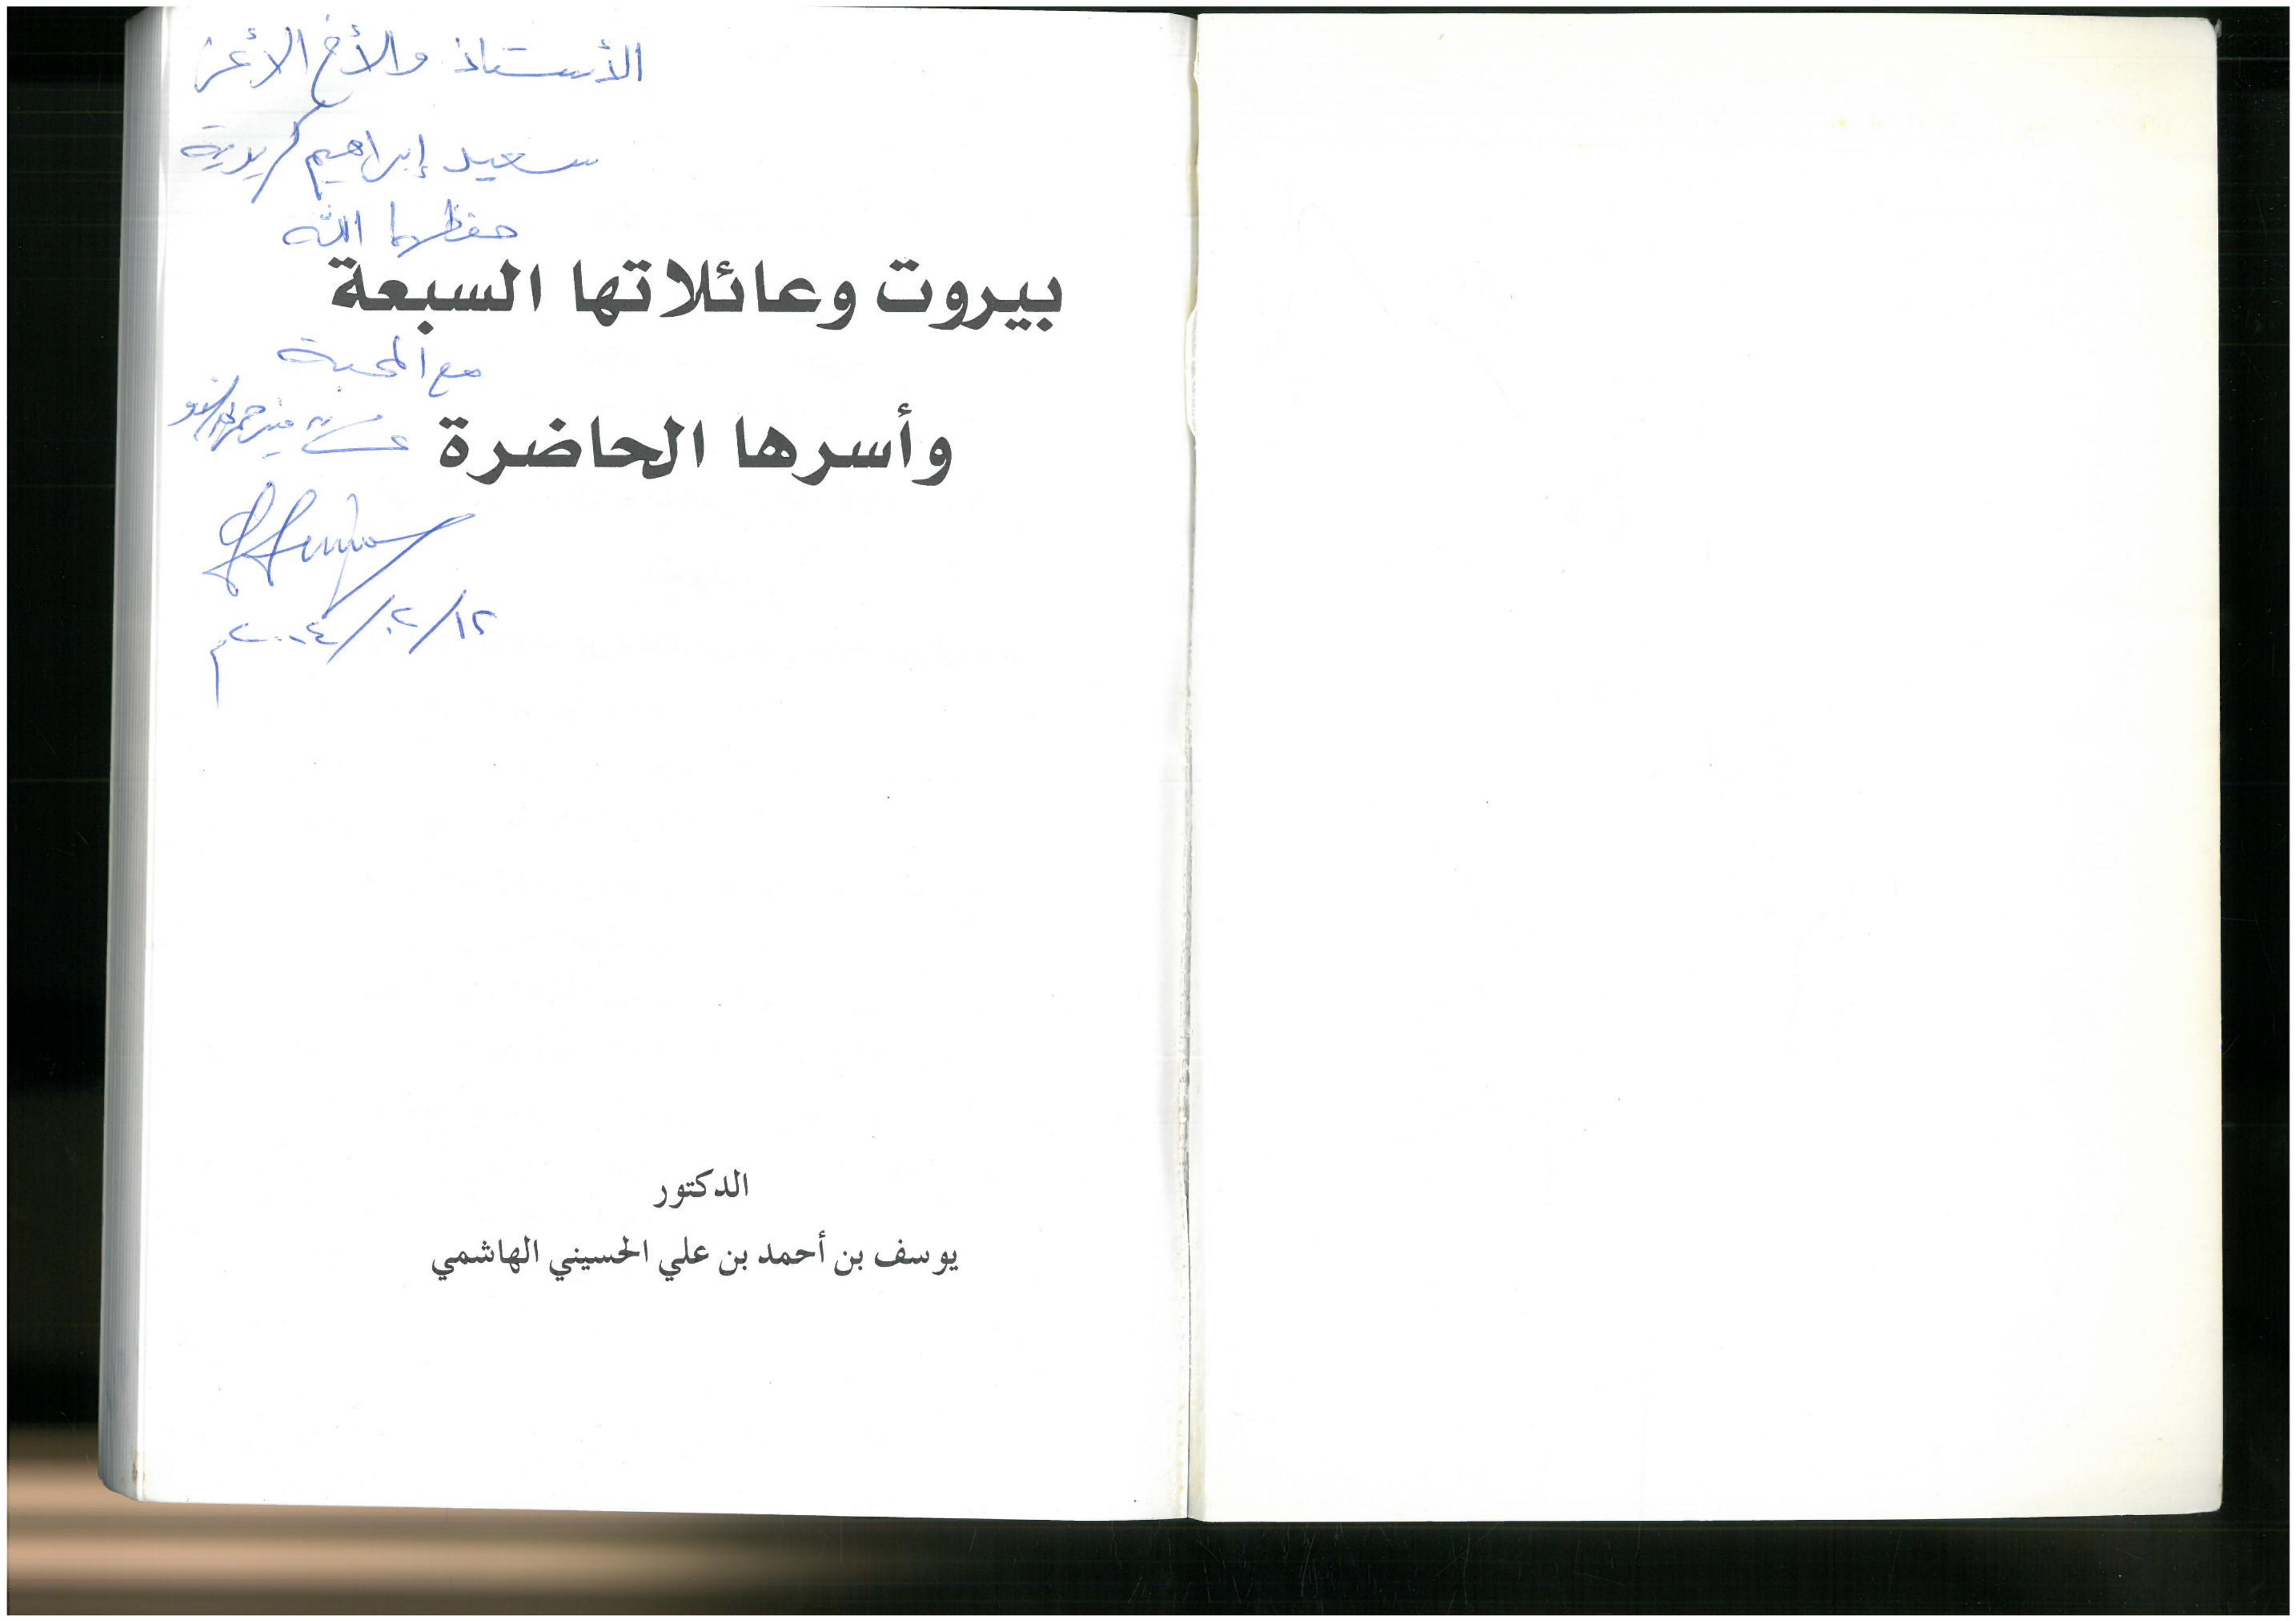 الأستاذ والأخ الأعز
سعيد إبراهيم كريدية
حفظهما الله
بيروت وعائلاتها السبعة
مع المحبة
وأسرها الحاضرة
١٢/٠٢/٢٠٠٤م
الدكتور
يوسف بن أحمد بن علي الحسيني الهاشمي